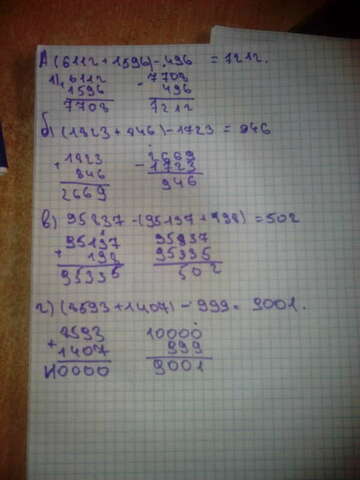 А (6112 + 1596) - 496 = 7212.
1) 6112 - 7708
1596 496
7708 7212
б) (1823 + 846) - 1723 = 946
+ 1823 - 2669
846 1723
2669 946
в) 95837 - (95137 + 198) = 502
+ 95137 95837
198 95335
95335 502
г) (8593 + 1407) - 999 = 9001.
+ 8593 10000
1407 999
10000 9001